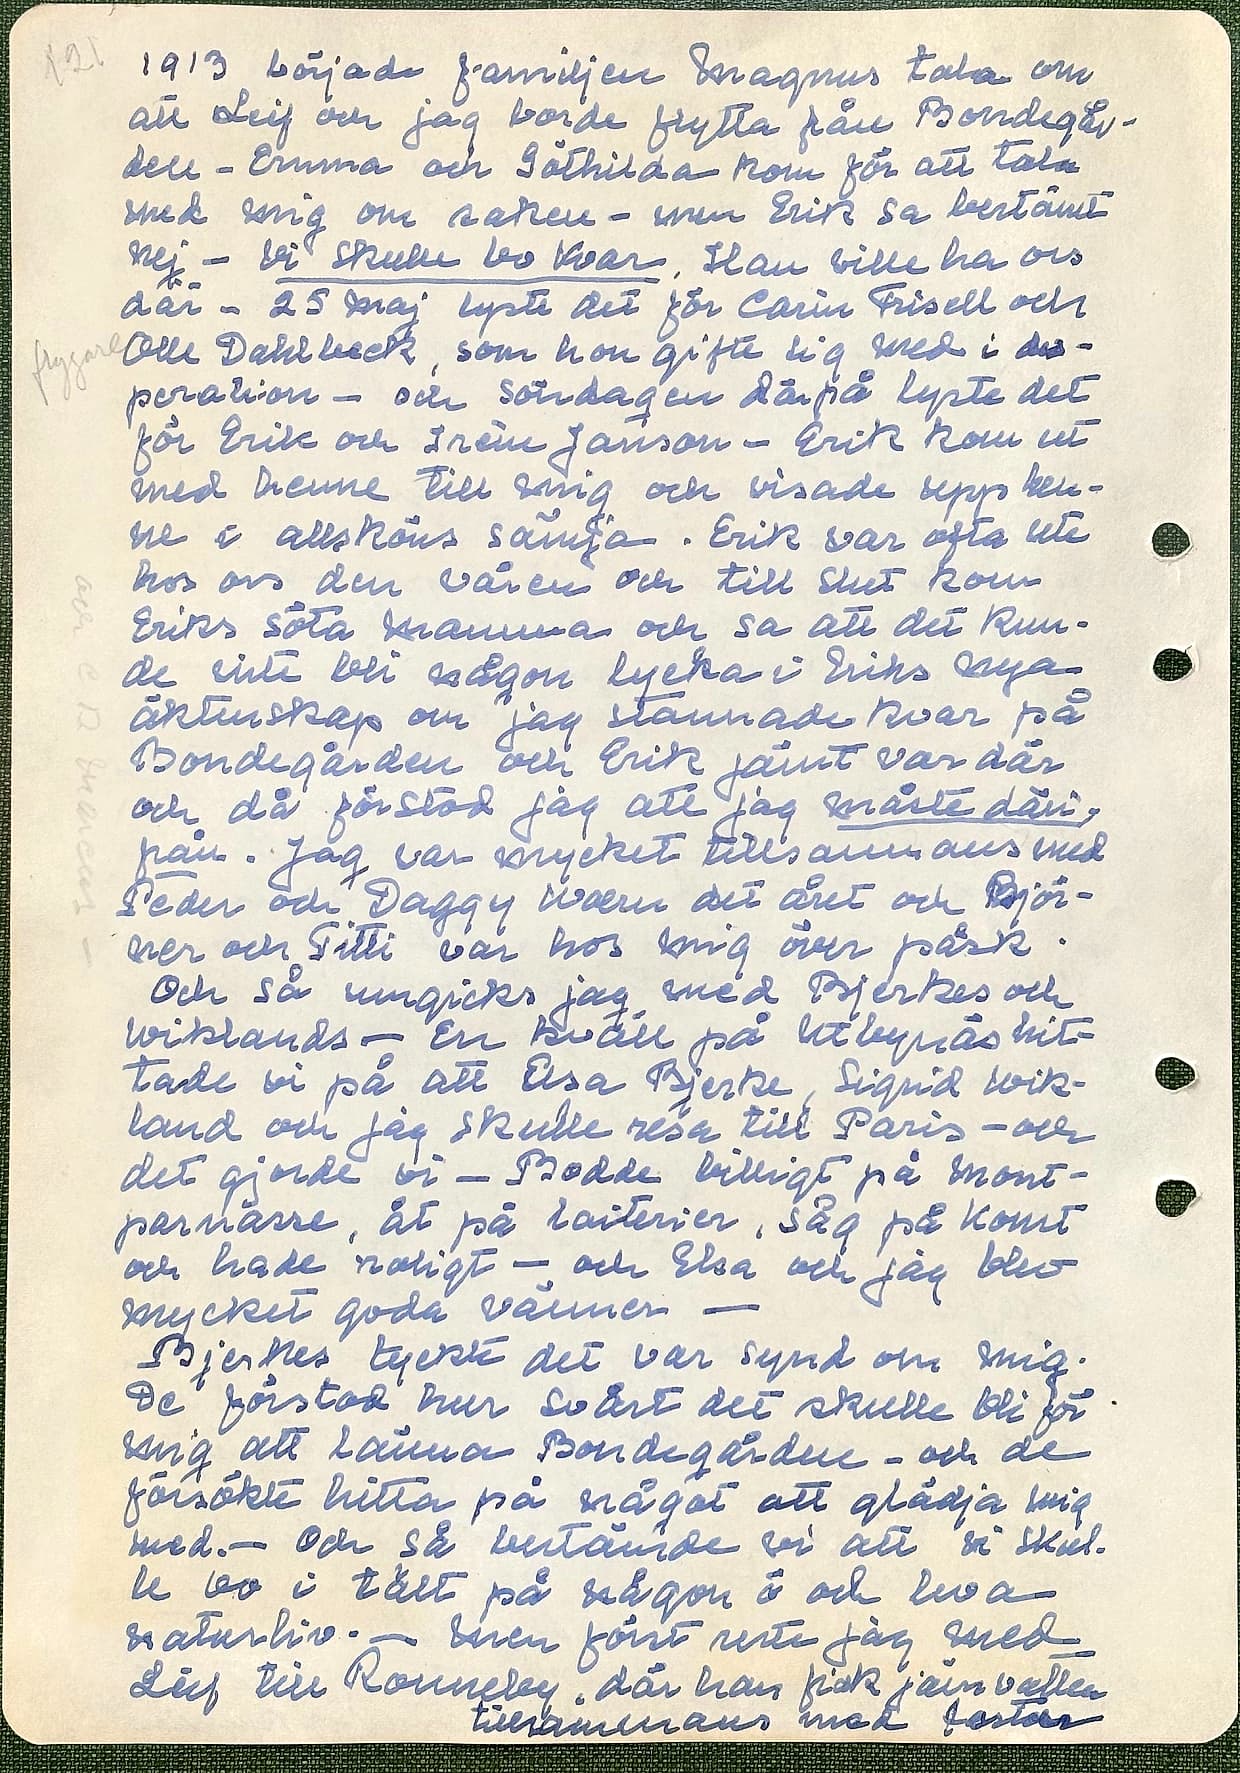 121
1913 började familjen Magnus tala om
att Leif och jag borde flytta från Bondegår-
den - Emma och Göthilda kom för att tala
med mig om saken - men Erik sa bestämt
nej - vi skulle bo kvar. Han ville ha oss
där - 25 maj lyste det för Carin Frisell och
flygare
Olle Dahlbeck, som hon gifte sig med i des-
peration - och söndagen därpå lyste det
för Erik och Irén Janson - Erik kom ut
med henne till mig och visade upp hen-
ne i allsköns sämja. Erik var ofta ute
hos oss den våren och till slut kom
Eriks söta mamma och sa att det kun-
de inte bli någon lycka i Eriks nya
äktenskap om jag stannade kvar på
Bondegården och Erik jämt var där
och då förstod jag att jag måste däri-
från. Jag var mycket tillsammans med
Peder och Daggy Wærn det året och Björ-
ner och Titti var hos mig över påsk.
Och så umgicks jag med Bjerkes och
Wiklands - En kväll på Utbynäs hit-
tade vi på att Elsa Bjerke, Sigrid Wik-
land och jag skulle resa till Paris - och
det gjorde vi - Bodde billigt på Mont-
parnasse, åt på laiterier, såg på konst
och hade roligt - och Elsa och jag blev
mycket goda vänner -
Bjerkes tyckte det var synd om mig.
De förstod hur svårt det skulle bli för
mig att lämna Bondegården - och de
försökte hitta på något att glädja mig
med. - Och så bestämde vi att vi skul-
le bo i tält på någon ö och leva
naturliv. - Men först reste jag med
Leif till Ronneby, där han fick järnvatten
tillsammans med faster